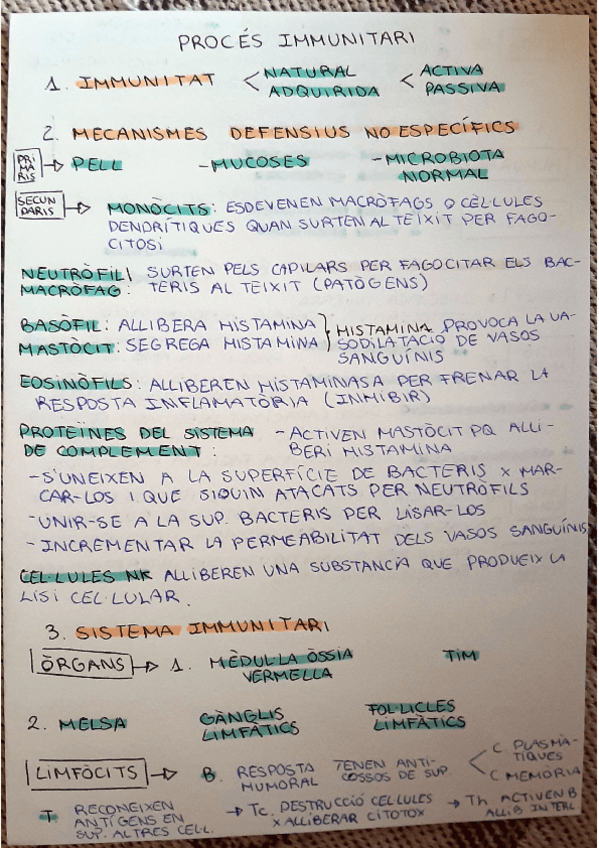 PROCÉS IMMUNITARI
1. IMMUNITAT < NATURAL < ACTIVA
ADQUIRIDA PASSIVA
2. MECANISMES DEFENSIUS NO ESPECÍFICS
PRIMARIS → PELL - MUCOSES - MICROBIOTA
NORMAL
SECUNDARIS → MONÒCITS: ESDEVENEN MACRÒFAGS O CÈL·LULES
DENDRÍTIQUES QUAN SURTEN AL TEIXIT PER FAGO-
CITOSI
NEUTRÒFIL I SURTEN PELS CAPIL·LARS PER FAGOCITAR ELS BAC-
MACRÒFAG: TERIS AL TEIXIT (PATÒGENS)
BASÒFIL: ALLIBERA HISTAMINA } HISTAMINA PROVOCA LA VA-
MASTÒCIT: SEGREGA HISTAMINA SODILATACIÓ DE VASOS
SANGUÍNIS
EOSINÒFILS: ALLIBEREN HISTAMINASA PER FRENAR LA
RESPOSTA INFLAMATÒRIA (INHIBIR)
PROTEÏNES DEL SISTEMA - ACTIVEN MASTÒCIT PQ ALLI-
DE COMPLEMENT: BERI HISTAMINA
- S'UNEIXEN A LA SUPERFÍCIE DE BACTERIS X MAR-
CAR-LOS I QUE SIGUIN ATACATS PER NEUTRÒFILS
- UNIR-SE A LA SUP. BACTERIS PER LISAR-LOS
- INCREMENTAR LA PERMEABILITAT DELS VASOS SANGUÍNIS
CÈL·LULES NK ALLIBEREN UNA SUBSTÀNCIA QUE PRODUEIX LA
LISI CEL·LULAR.
3. SISTEMA IMMUNITARI
ÒRGANS → 1. MÈDUL·LA ÒSSIA TIM
VERMELLA
2. MELSA GÀNGLIS FOL·LICLES
LIMFÀTICS LIMFÀTICS
LIMFÒCITS → B. RESPOSTA TENEN ANTI- < C PLASMÀ-
HUMORAL COSSOS DE SUP. TIQUES
C MEMÒRIA
T RECONEIXEN → Tc. DESTRUCCIÓ CEL·LULES → Th ACTIVEN B
ANTÍGENS EN X ALLIBERAR CITOTOX ALLIB INTERL
SUP. ALTRES CELL.